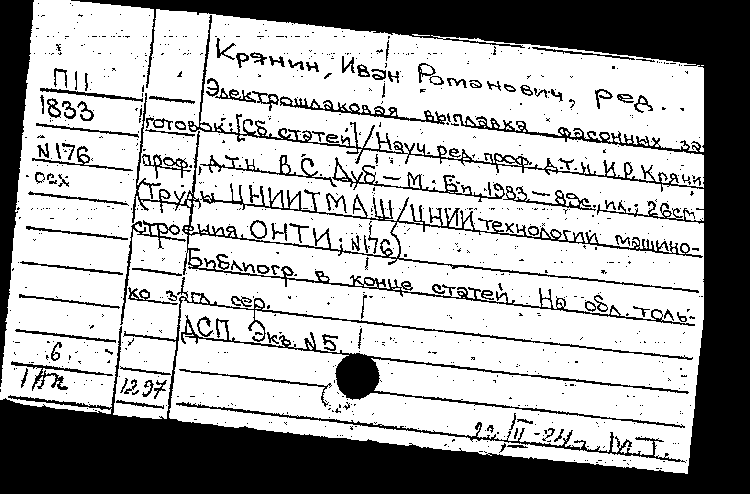 Крянин, Иван Романович, ред...
П11
Электрошлаковая выплавка фасонных за-
1833
готовок: [Сб. статей] / Науч. ред. проф. д.т.н. И.Р. Крянин
N176
проф., д.т.н. В.С. Дуб. — М.: Б.и., 1983 — 89с., ил.; 26см.
осх
(Труды ЦНИИТМАШ / ЦНИИ технологии машино-
строения. ОНТИ; N176).
Библиогр. в конце статей. На обл. толь-
ко загл. сер.
ДСП. Экз. N5.
6
1297
22/II-84г. М.Т.